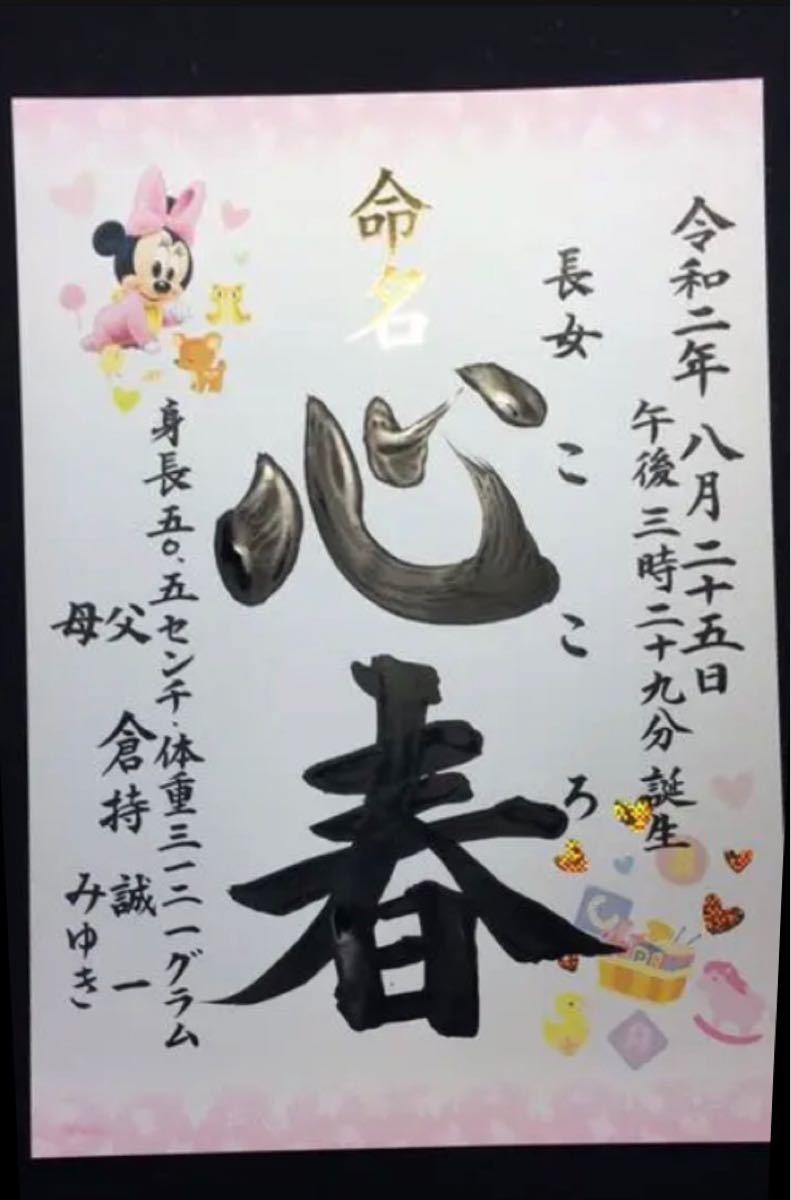 令和二年 八月二十五日
午後三時二十九分誕生
長女 こころ
命名
心春
身長五〇.五センチ・体重三一二一グラム
父 倉持 誠一
母 みゆき